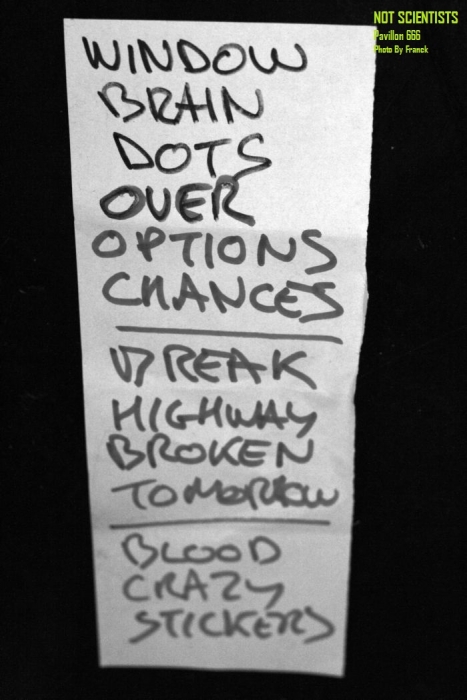 NOT SCIENTISTS
Pavillon 666
Photo By Franck
WINDOW
BRAIN
DOTS
OVER
OPTIONS
CHANCES
BREAK
HIGHWAY
BROKEN
TOMORROW
BLOOD
CRAZY
STICKERS